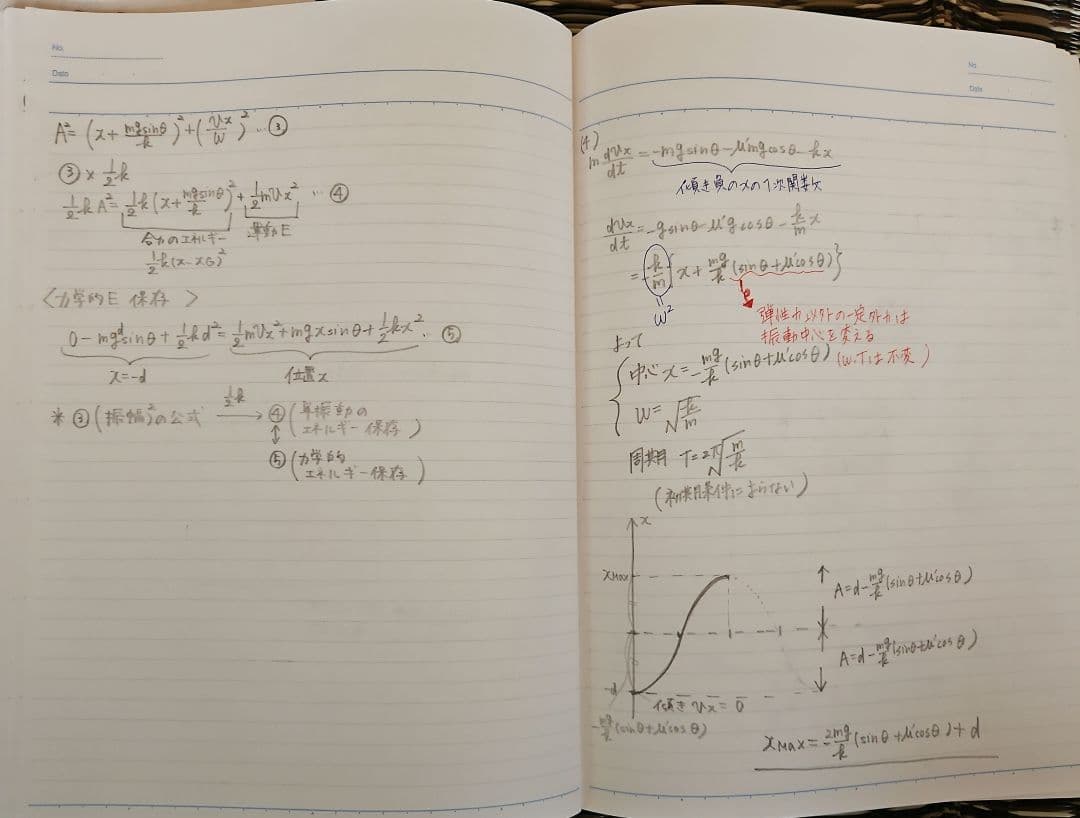 No.
Date
A²= (x+ mgsinθ/k )²+(vx/ω)² … ③
③ × 1/2 k
1/2 kA²= 1/2 k(x+ mgsinθ/k)²+ 1/2 mvx² … ④
合力のエネルギー 運動E
1/2 k(x-xG)²
〈力学的E 保存 〉
0-mgdsinθ+1/2 kd²=1/2 mvx²+mgxsinθ+1/2 kx² … ⑤
x=-d 位置x
* ③(振幅)²の公式 1/2 k → ④(単振動のエネルギー保存)
↕
⑤(力学的エネルギー保存)
No.
Date
(4)
m dvx/dt = -mgsinθ-μ'mgcosθ-kx
傾き負のxの1次関数
dvx/dt = -gsinθ-μ'gcosθ- k/m x
= -k/m { x+ mg/k (sinθ+μ'cosθ)}
ω²
弾性力以外の一定外力は
振動中心を変える
(ω,Tは不変)
よって
中心 x=- mg/k (sinθ+μ'cosθ)
ω= √k/m
周期 T=2π√m/k
(初期条件によらない)
x
xMax
A=d- mg/k (sinθ+μ'cosθ)
A=d- mg/k (sinθ+μ'cosθ)
-d
傾き vx = 0
- mg/k (sinθ+μ'cosθ)
xMax = - 2mg/k (sinθ+μ'cosθ)+d